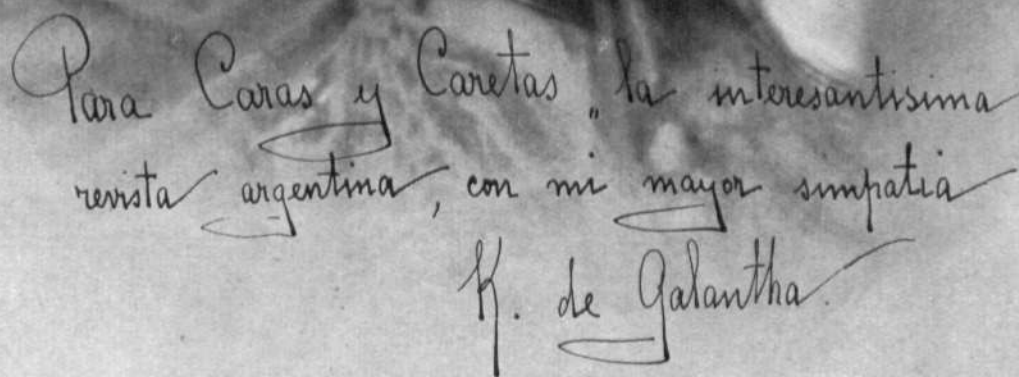 Para Caras y Caretas „ la interesantisima
revista argentina, con mi mayor simpatia
K. de Galantha.